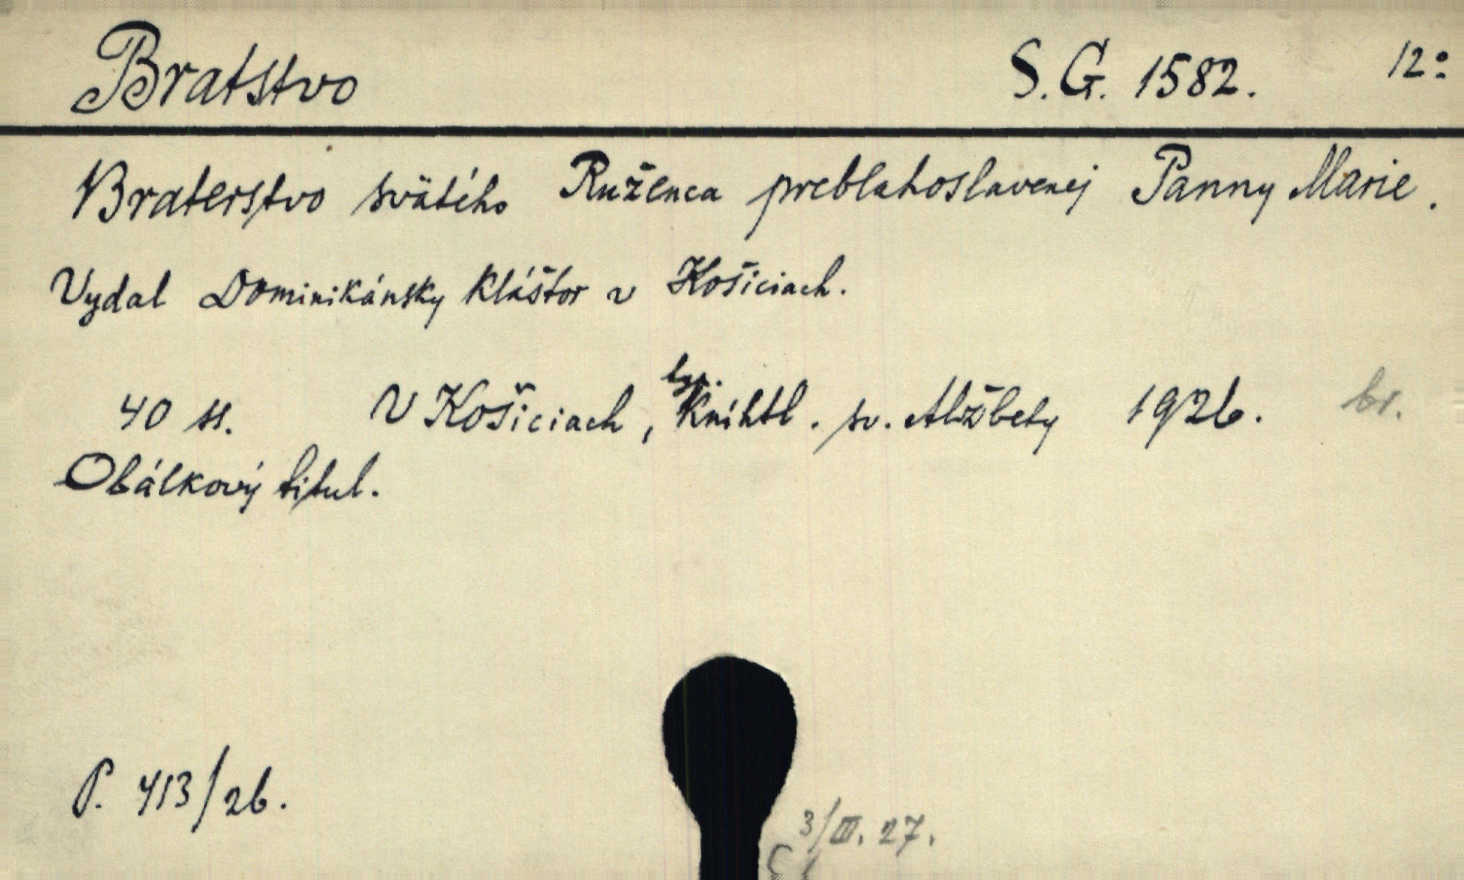 Bratstvo S.G. 1582. 12°
Braterstvo svätého Ruženca preblahoslavenej Panny Marie.
Vydal Dominikánsky Kláštor v Košiciach.
40 ss. V Košiciach, typ. Kníhtl. sv. Alžbety 1926. br.
Obálkový titul.
P. 413/26.
3/III. 27.